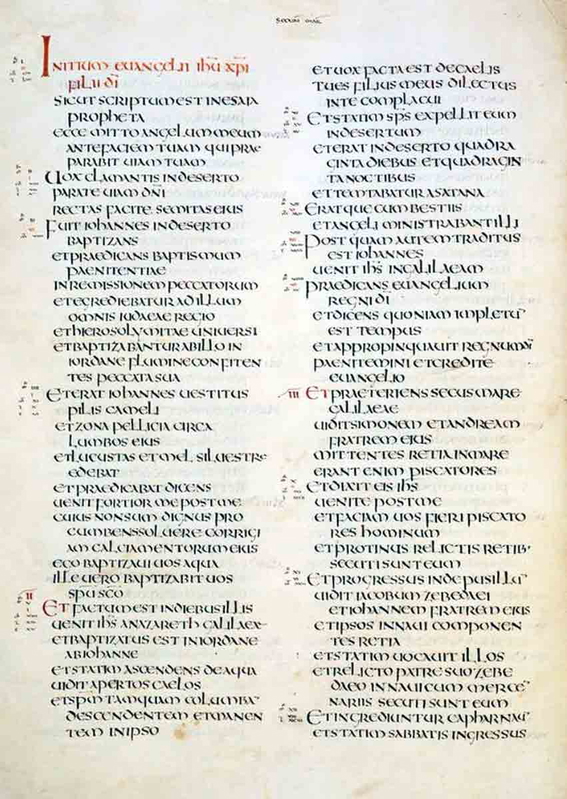 INITIUM EUANGELII IHU XPI
FILII DI
SICUT SCRIPTUM EST IN ESAIA
PROPHETA
ECCE MITTO ANGELUM MEUM
ANTE FACIEM TUAM QUI PRAE
PARABIT UIAM TUAM
UOX CLAMANTIS IN DESERTO
PARATE UIAM DNI
RECTAS FACITE SEMITAS EIUS
FUIT IOHANNES IN DESERTO
BAPTIZANS
ET PRAEDICANS BAPTISMUM
PAENITENTIAE
IN REMISSIONEM PECCATORUM
ET EGREDIEBATUR AD ILLUM
OMNIS IUDAEAE REGIO
ET HIEROSOLYMITAE UNIUERSI
ET BAPTIZABANTUR AB ILLO IN
IORDANE FLUMINE CONFITEN
TES PECCATA SUA
ET ERAT IOHANNES UESTITUS
PILIS CAMELI
ET ZONA PELLICIA CIRCA
LUMBOS EIUS
ET LUCUSTAS ET MEL SILUESTRE
EDEBAT
ET PRAEDICABAT DICENS
UENIT FORTIOR ME POST ME
CUIUS NON SUM DIGNUS PRO
CUMBENS SOLUERE CORRIGI
AM CALCIAMENTORUM EIUS
EGO BAPTIZAUI UOS AQUA
ILLE UERO BAPTIZABIT UOS
SPU SCO
II ET FACTUM EST IN DIEBUS ILLIS
UENIT IHS A NAZARETH GALILAEAE
ET BAPTIZATUS EST IN IORDANE
AB IOHANNE
ET STATIM ASCENDENS DE AQUA
UIDIT APERTOS CAELOS
ET SPM TAMQUAM COLUMBA
DESCENDENTEM ET MANEN
TEM IN IPSO
ET UOX FACTA EST DE CAELIS
TU ES FILIUS MEUS DILECTUS
IN TE COMPLACUI
ET STATIM SPS EXPELLIT EUM
IN DESERTUM
ET ERAT IN DESERTO QUADRA
GINTA DIEBUS ET QUADRAGIN
TA NOCTIBUS
ET TEMTABATUR A SATANA
ERATQUE CUM BESTIIS
ET ANGELI MINISTRABANT ILLI
POST QUAM AUTEM TRADITUS
EST IOHANNES
UENIT IHS IN GALILAEAM
PRAEDICANS EUANGELIUM
REGNI DI
ET DICENS QUONIAM IMPLETU
EST TEMPUS
ET APPROPINQUAUIT REGNUM DI
PAENITEMINI ET CREDITE
EUANGELIO
III ET PRAETERIENS SECUS MARE
GALILAEAE
UIDIT SIMONEM ET ANDREAM
FRATREM EIUS
MITTENTES RETIA IN MARE
ERANT ENIM PISCATORES
ET DIXIT EIS IHS
UENITE POST ME
ET FACIAM UOS FIERI PISCATO
RES HOMINUM
ET PROTINUS RELICTIS RETIB·
SECUTI SUNT EUM
ET PROGRESSUS INDE PUSILLU
UIDIT IACOBUM ZEBEDAEI
ET IOHANNEM FRATREM EIUS
ET IPSOS IN NAUI COMPONEN
TES RETIA
ET STATIM UOCAUIT ILLOS
ET RELICTO PATRE SUO ZEBE
DAEO IN NAUI CUM MERCE
NARIIS SECUTI SUNT EUM
ET INGREDIUNTUR CAPHARNAU
ET STATIM SABBATIS INGRESSUS